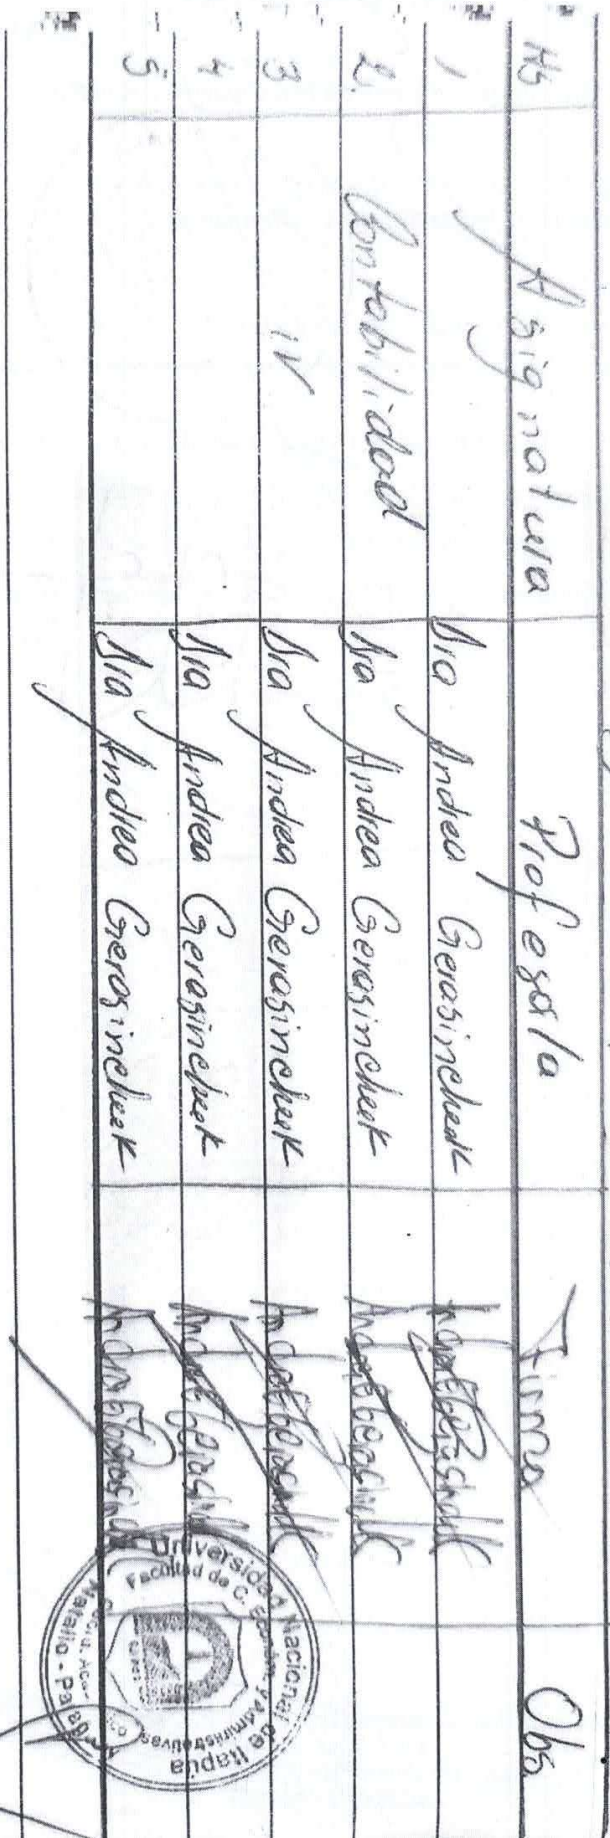 Hs Asignatura Profesora Firma Obs
1 Dra Andrea Gerasincheuk
2. Contabilidad Dra Andrea Gerasincheuk
3 IV Dra Andrea Gerasincheuk
4 Dra Andrea Gerasincheuk
5. Dra Andrea Gerasincheuk
Universidad Nacional de Itapúa
Facultad de C. Económ. y Administrativas
Natalio -